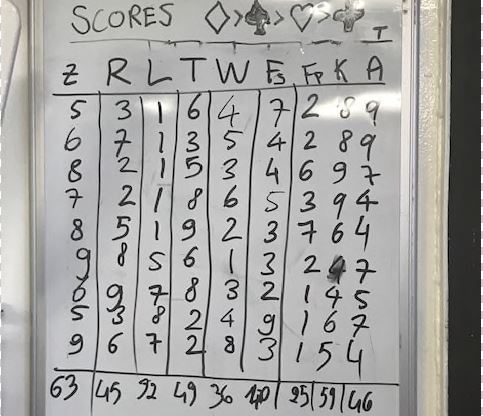 SCORES ◇>♠>♡>♣
T
Z R L T W Fs Fp K A
5 3 1 6 4 7 2 8 9
6 7 1 3 5 4 2 8 9
8 2 1 5 3 4 6 9 7
7 2 1 8 6 5 3 9 4
8 5 1 9 2 3 7 6 4
9 8 5 6 1 3 2 4 7
6 9 7 8 3 2 1 4 5
5 3 8 2 4 9 1 6 7
9 6 7 2 8 3 1 5 4
63 45 32 49 36 40 25 59 46